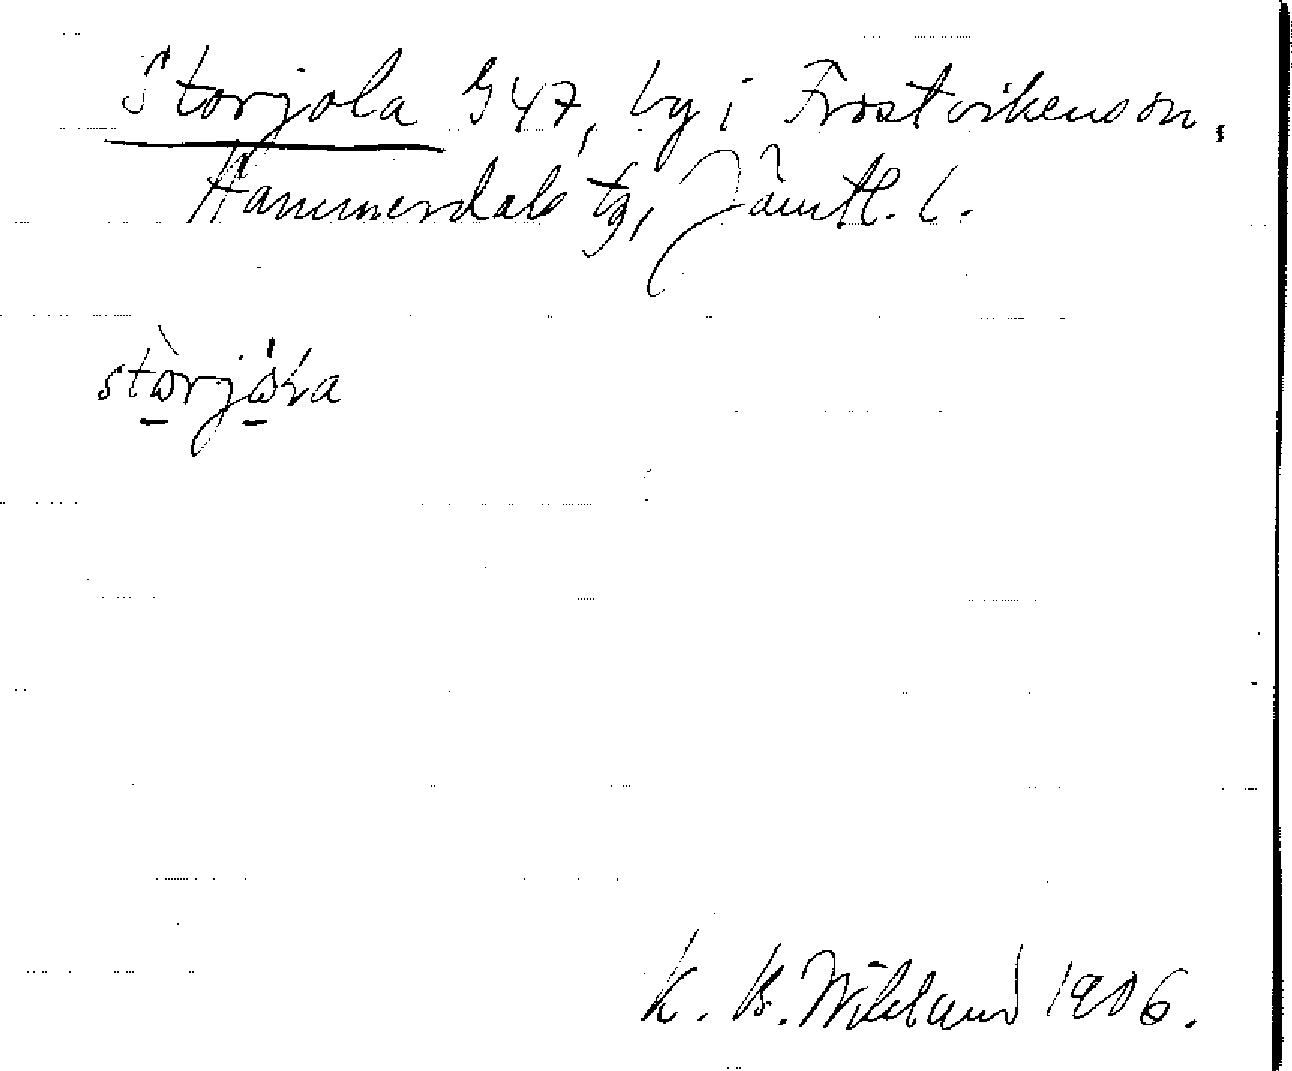 Storjola G47, by i Frostvikens sn,
Hammerdals tg, Jämtl. l.
stòrjòka
K. B. Wiklund 1906.